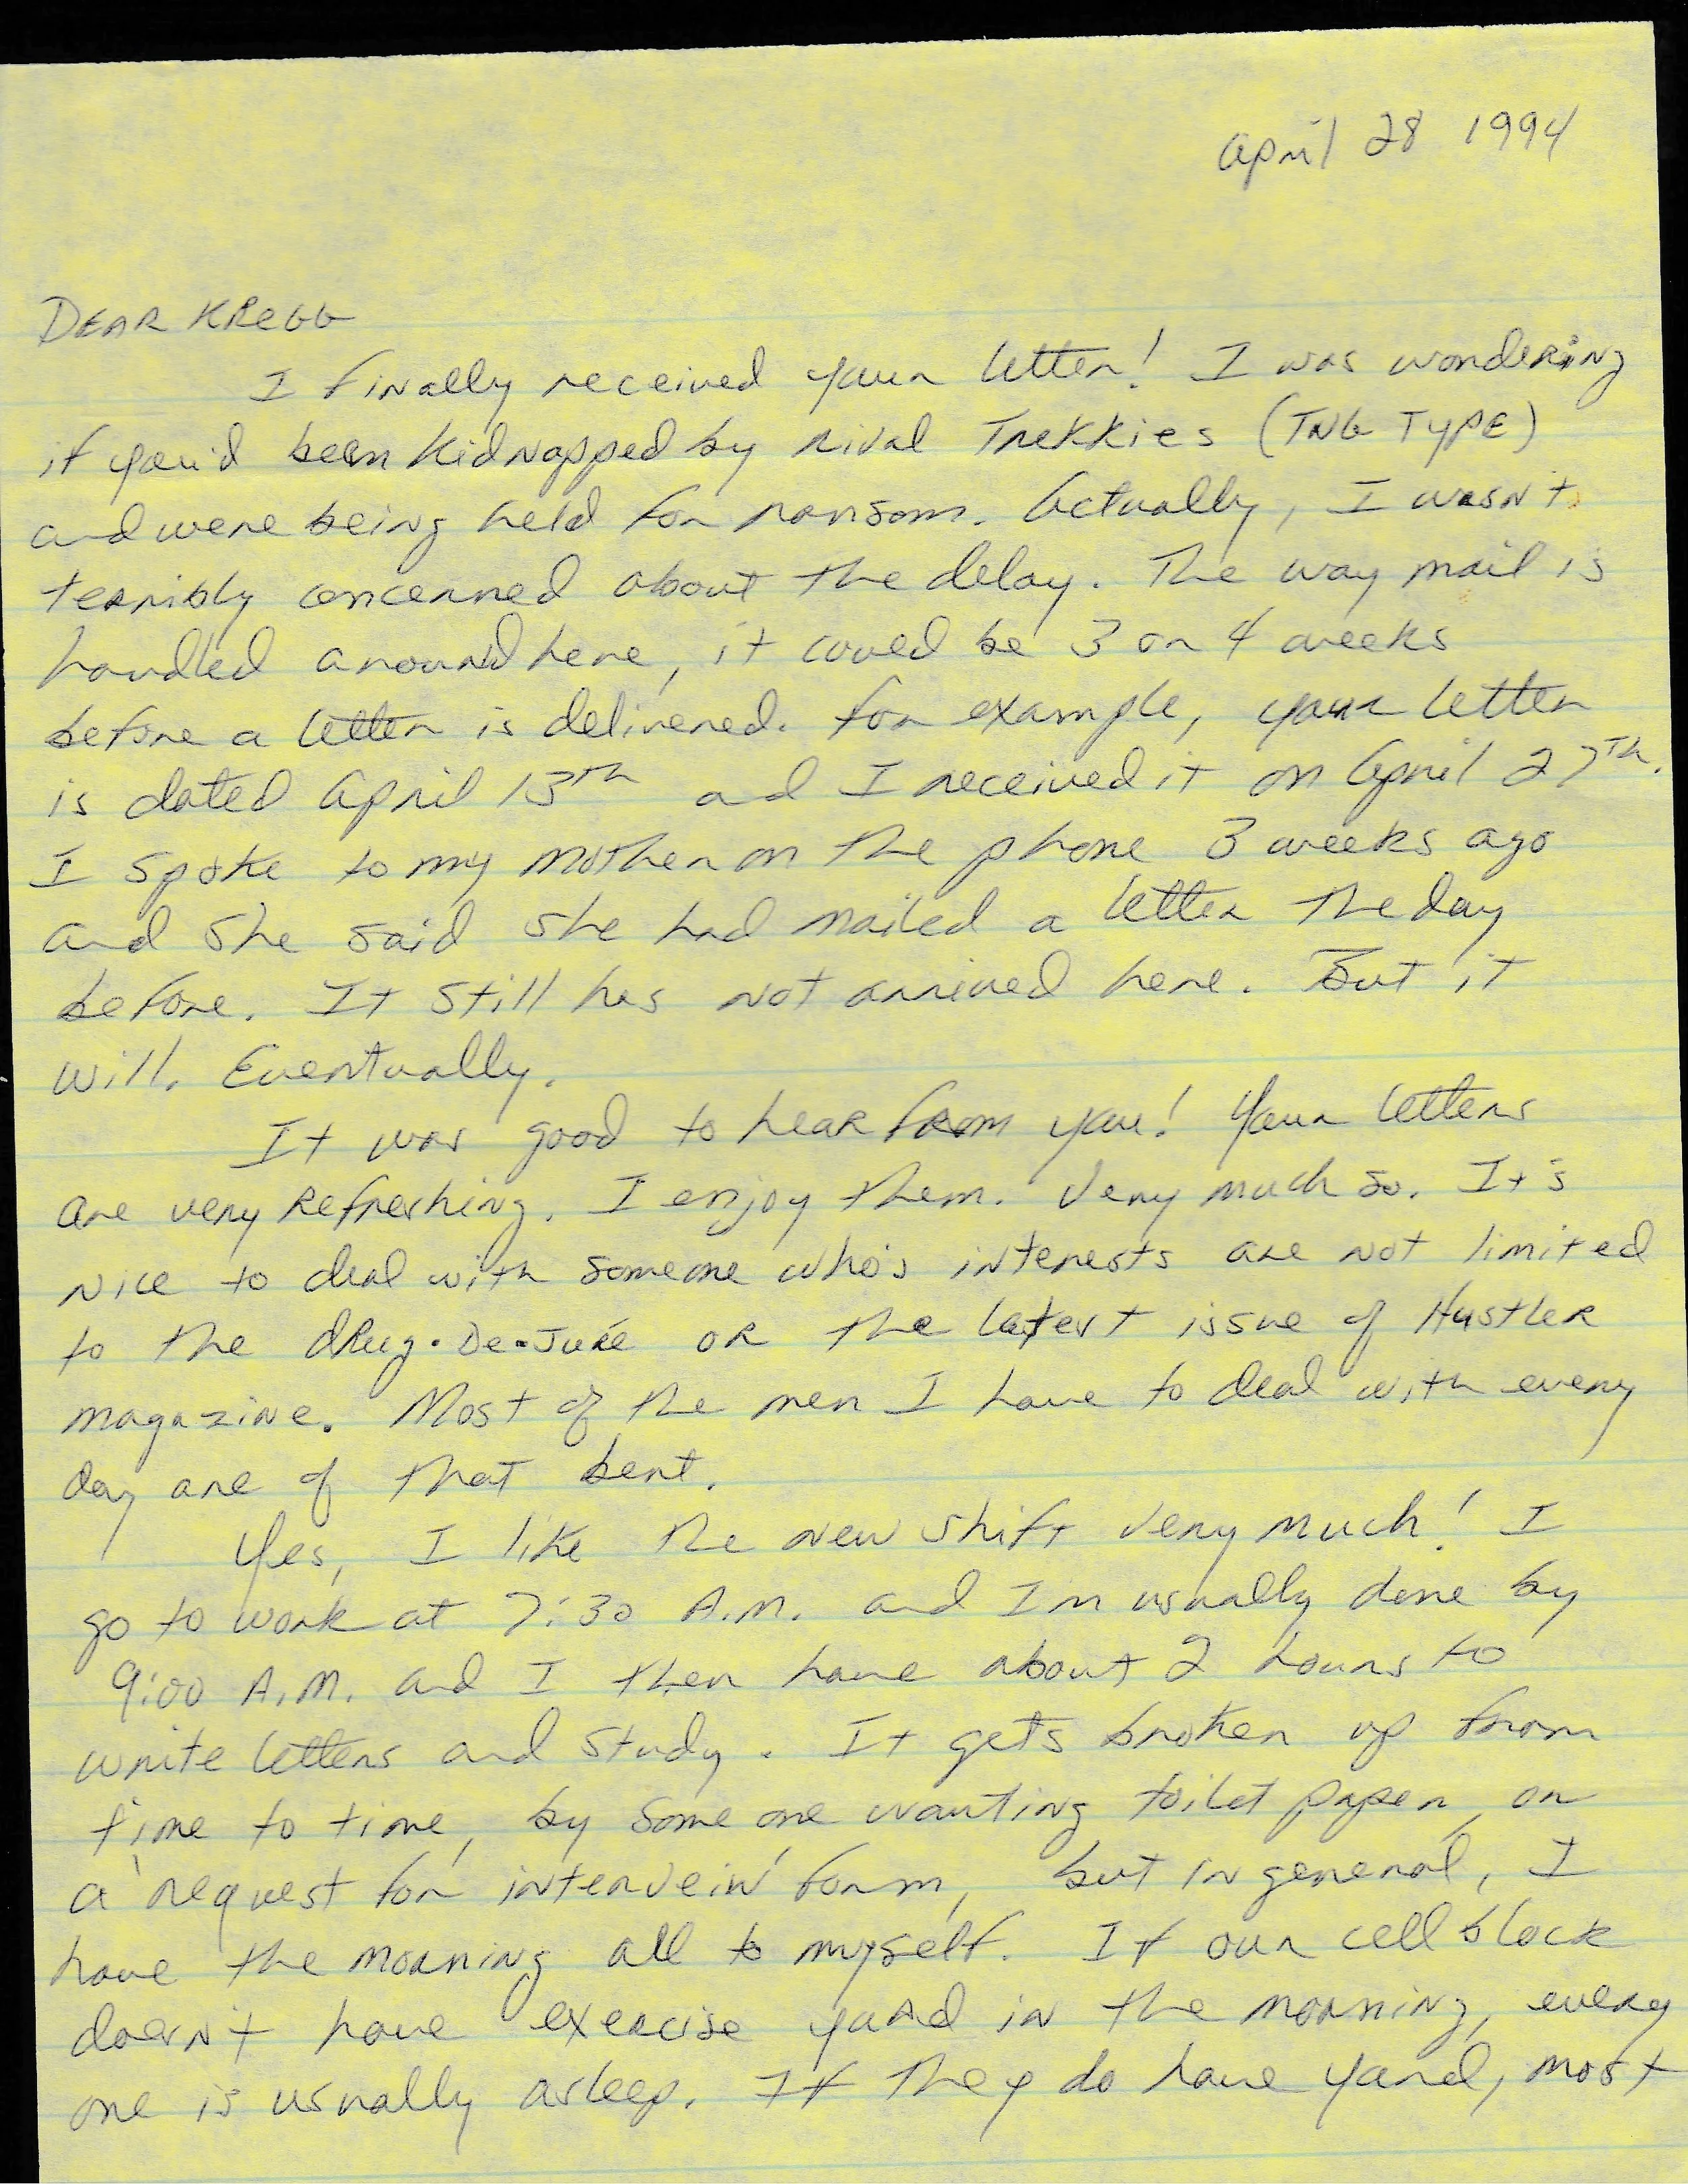 April 28 1994
DEAR KREGG
I finally received your letter! I was wondering
if you'd been kidnapped by rival Trekkies (TNG TYPE)
and were being held for ransom. Actually, I wasn't
terribly concerned about the delay. The way mail is
handled around here, it could be 3 or 4 weeks
before a letter is delivered. For example, your letter
is dated April 13th and I received it on April 27th.
I spoke to my mother on the phone 3 weeks ago
and she said she had mailed a letter the day
before. It still has not arrived here. But it
will. Eventually.
It was good to hear from you! Your letters
are very refreshing. I enjoy them. Very much so. It's
nice to deal with someone who's interests are not limited
to the drug-De-Jure or the latest issue of Hustler
magazine. Most of the men I have to deal with every
day are of that bent.
Yes, I like the new shift very much! I
go to work at 7:30 A.M. and I'm usually done by
9:00 A.M. and I then have about 2 hours to
write letters and study. It gets broken up from
time to time, by some one wanting toilet paper, or
a 'request for interveiw' form, but in general, I
have the morning all to myself. If our cell block
doesn't have exercise yard in the morning, every
one is usually asleep. If they do have yard, most